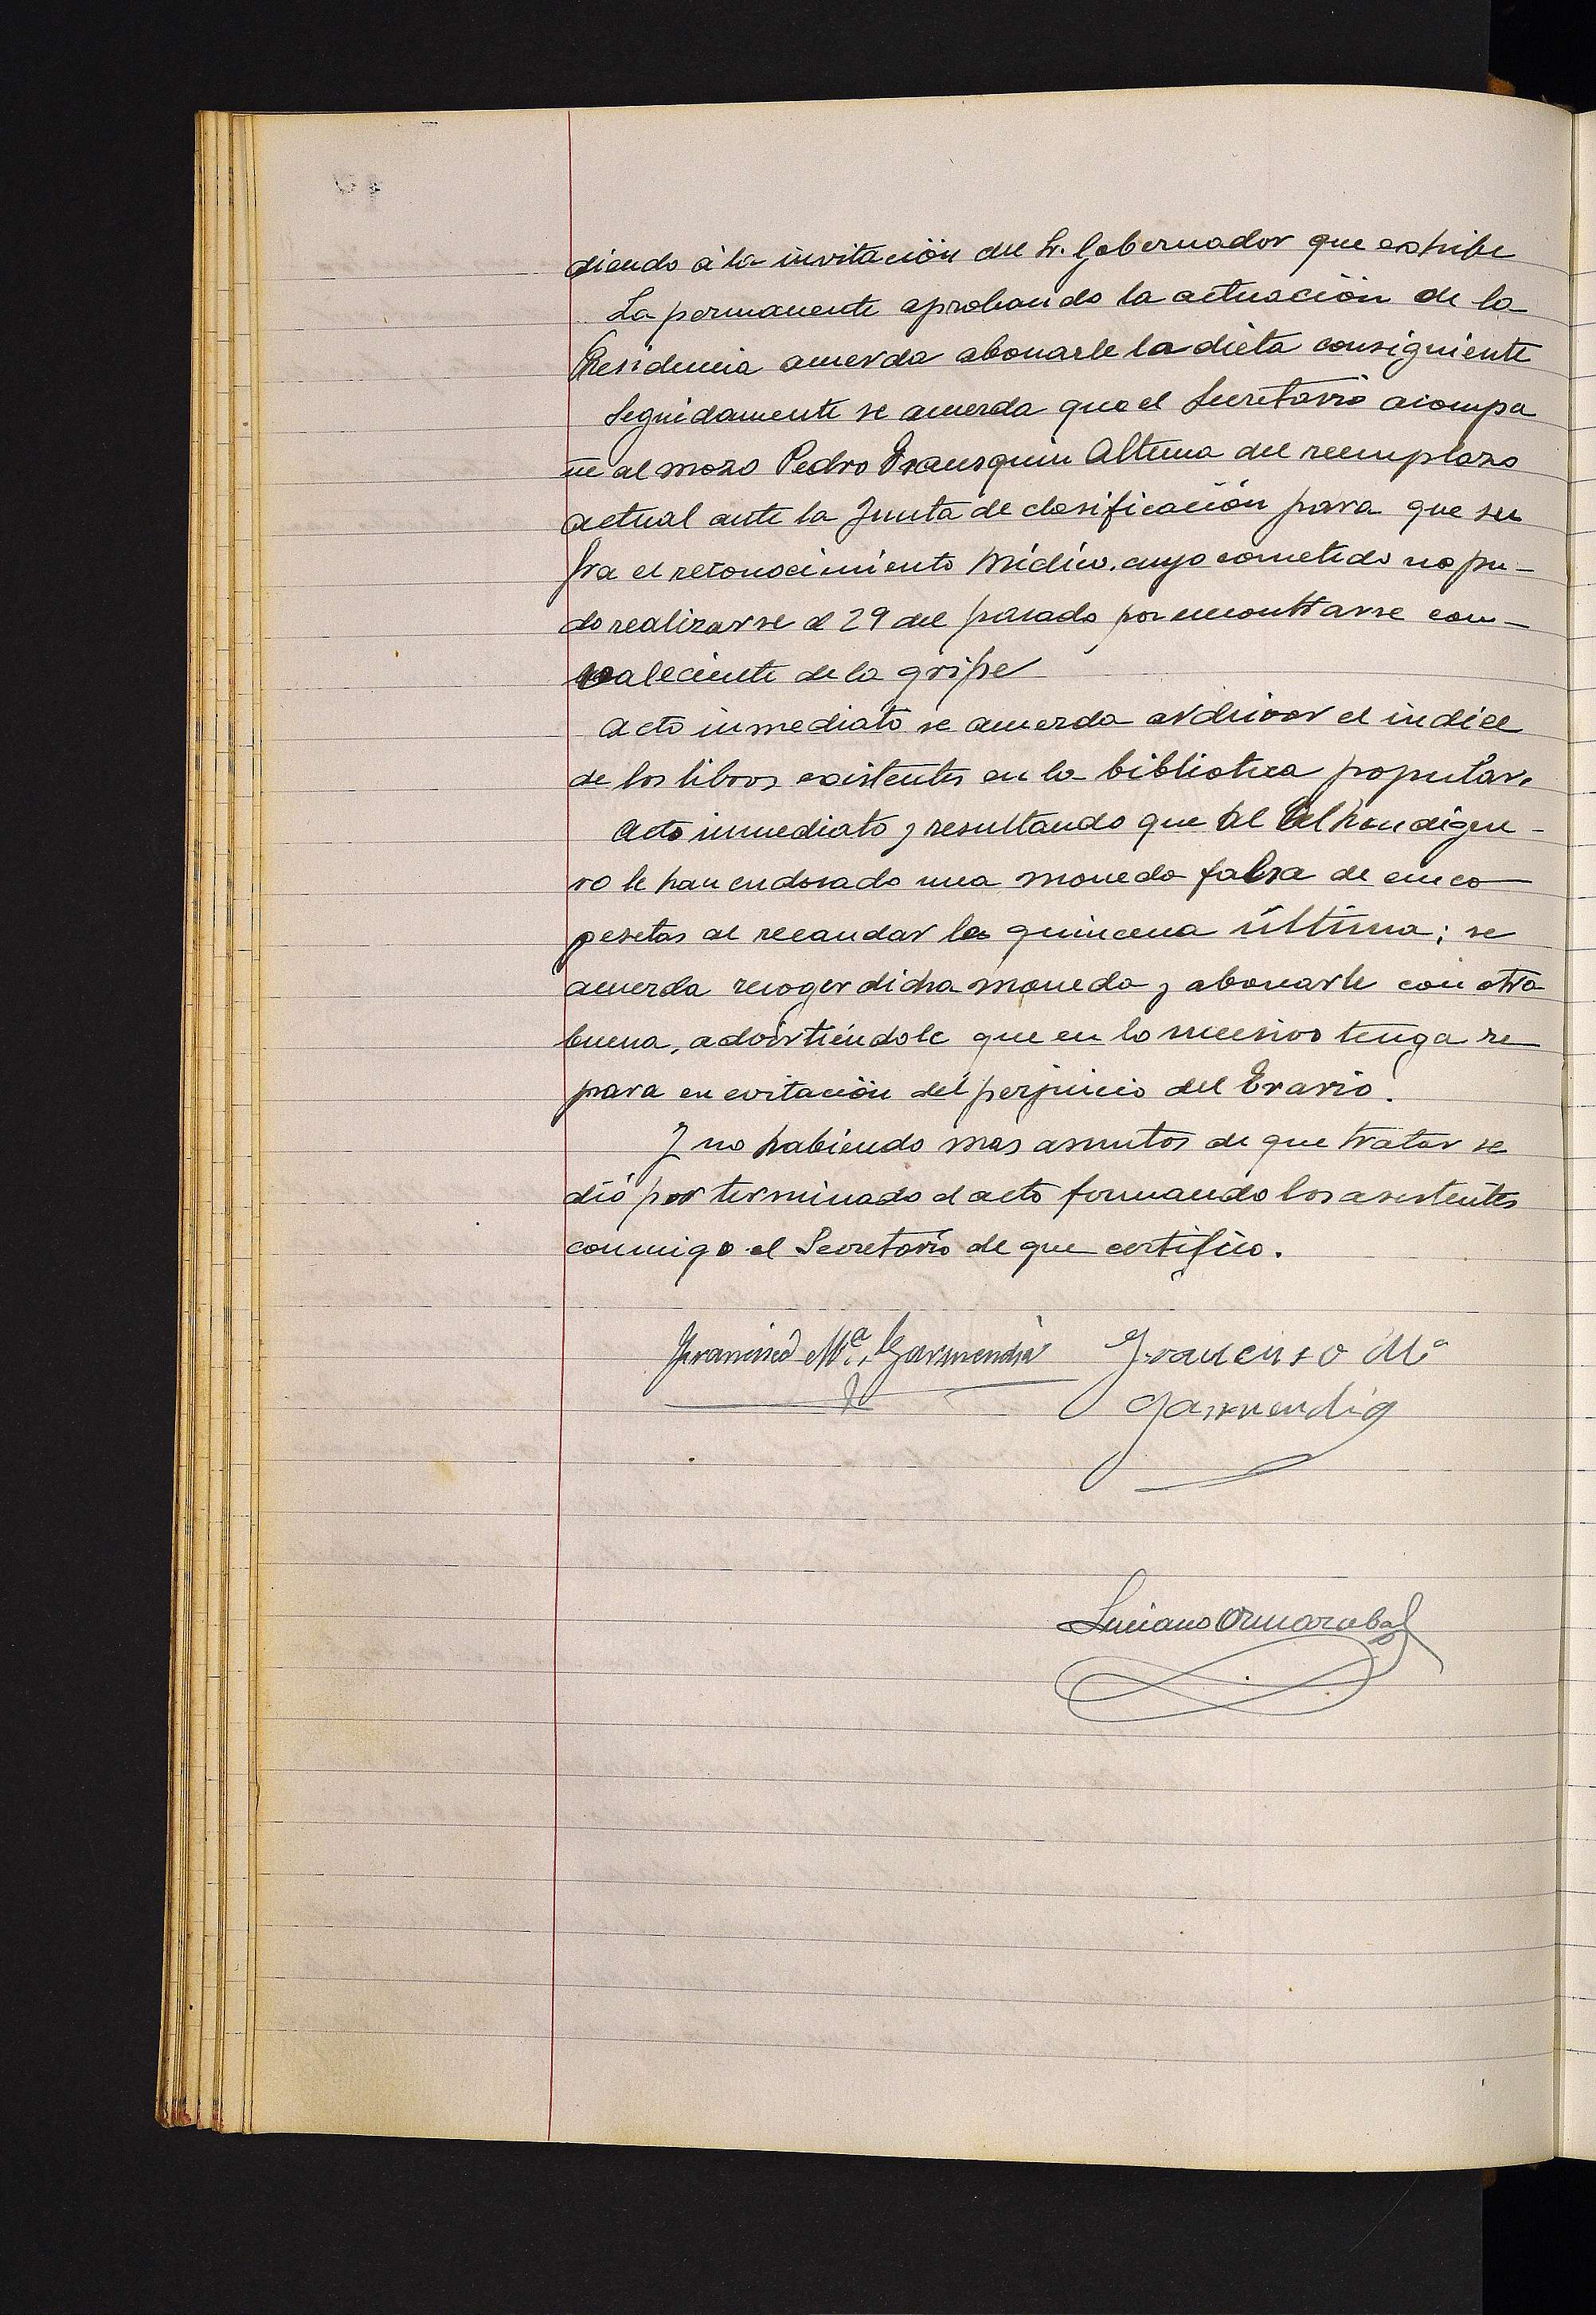 diendo á la invitación del Sr. Gobernador que exhibe
La permanente aprobando la actuación de la
Presidencia acuerda abonarle la dieta consiguiente
Seguidamente se acuerda que el Secretario acompa
ñe al mozo Pedro Irausquin Altuna del reemplazo
actual ante la Junta de clasificación para que su
fra el reconocimiento médico, cuyo cometido no pu-
do realizarse el 29 del pasado por encontrarse con-
valeciente de la gripe
Acto inmediato se acuerda archivar el indice
de los libros existentes en la biblioteca popular.
Acto inmediato y resultando que al alhondigue-
ro le han endosado una moneda falsa de cinco
pesetas al recaudar la quincena última; se
acuerda recoger dicha moneda y abonarle con otra
buena, advirtiéndole que en lo sucesivo tenga re
para en evitación del perjuicio del Erario.
Y no habiendo mas asuntos de que tratar se
dió por terminado el acto firmando los asistentes
conmigo el Secretario de que certifico.
Francisco Mª Garmendia Francisco Mª
Garmendia
Luciano Ormazabal